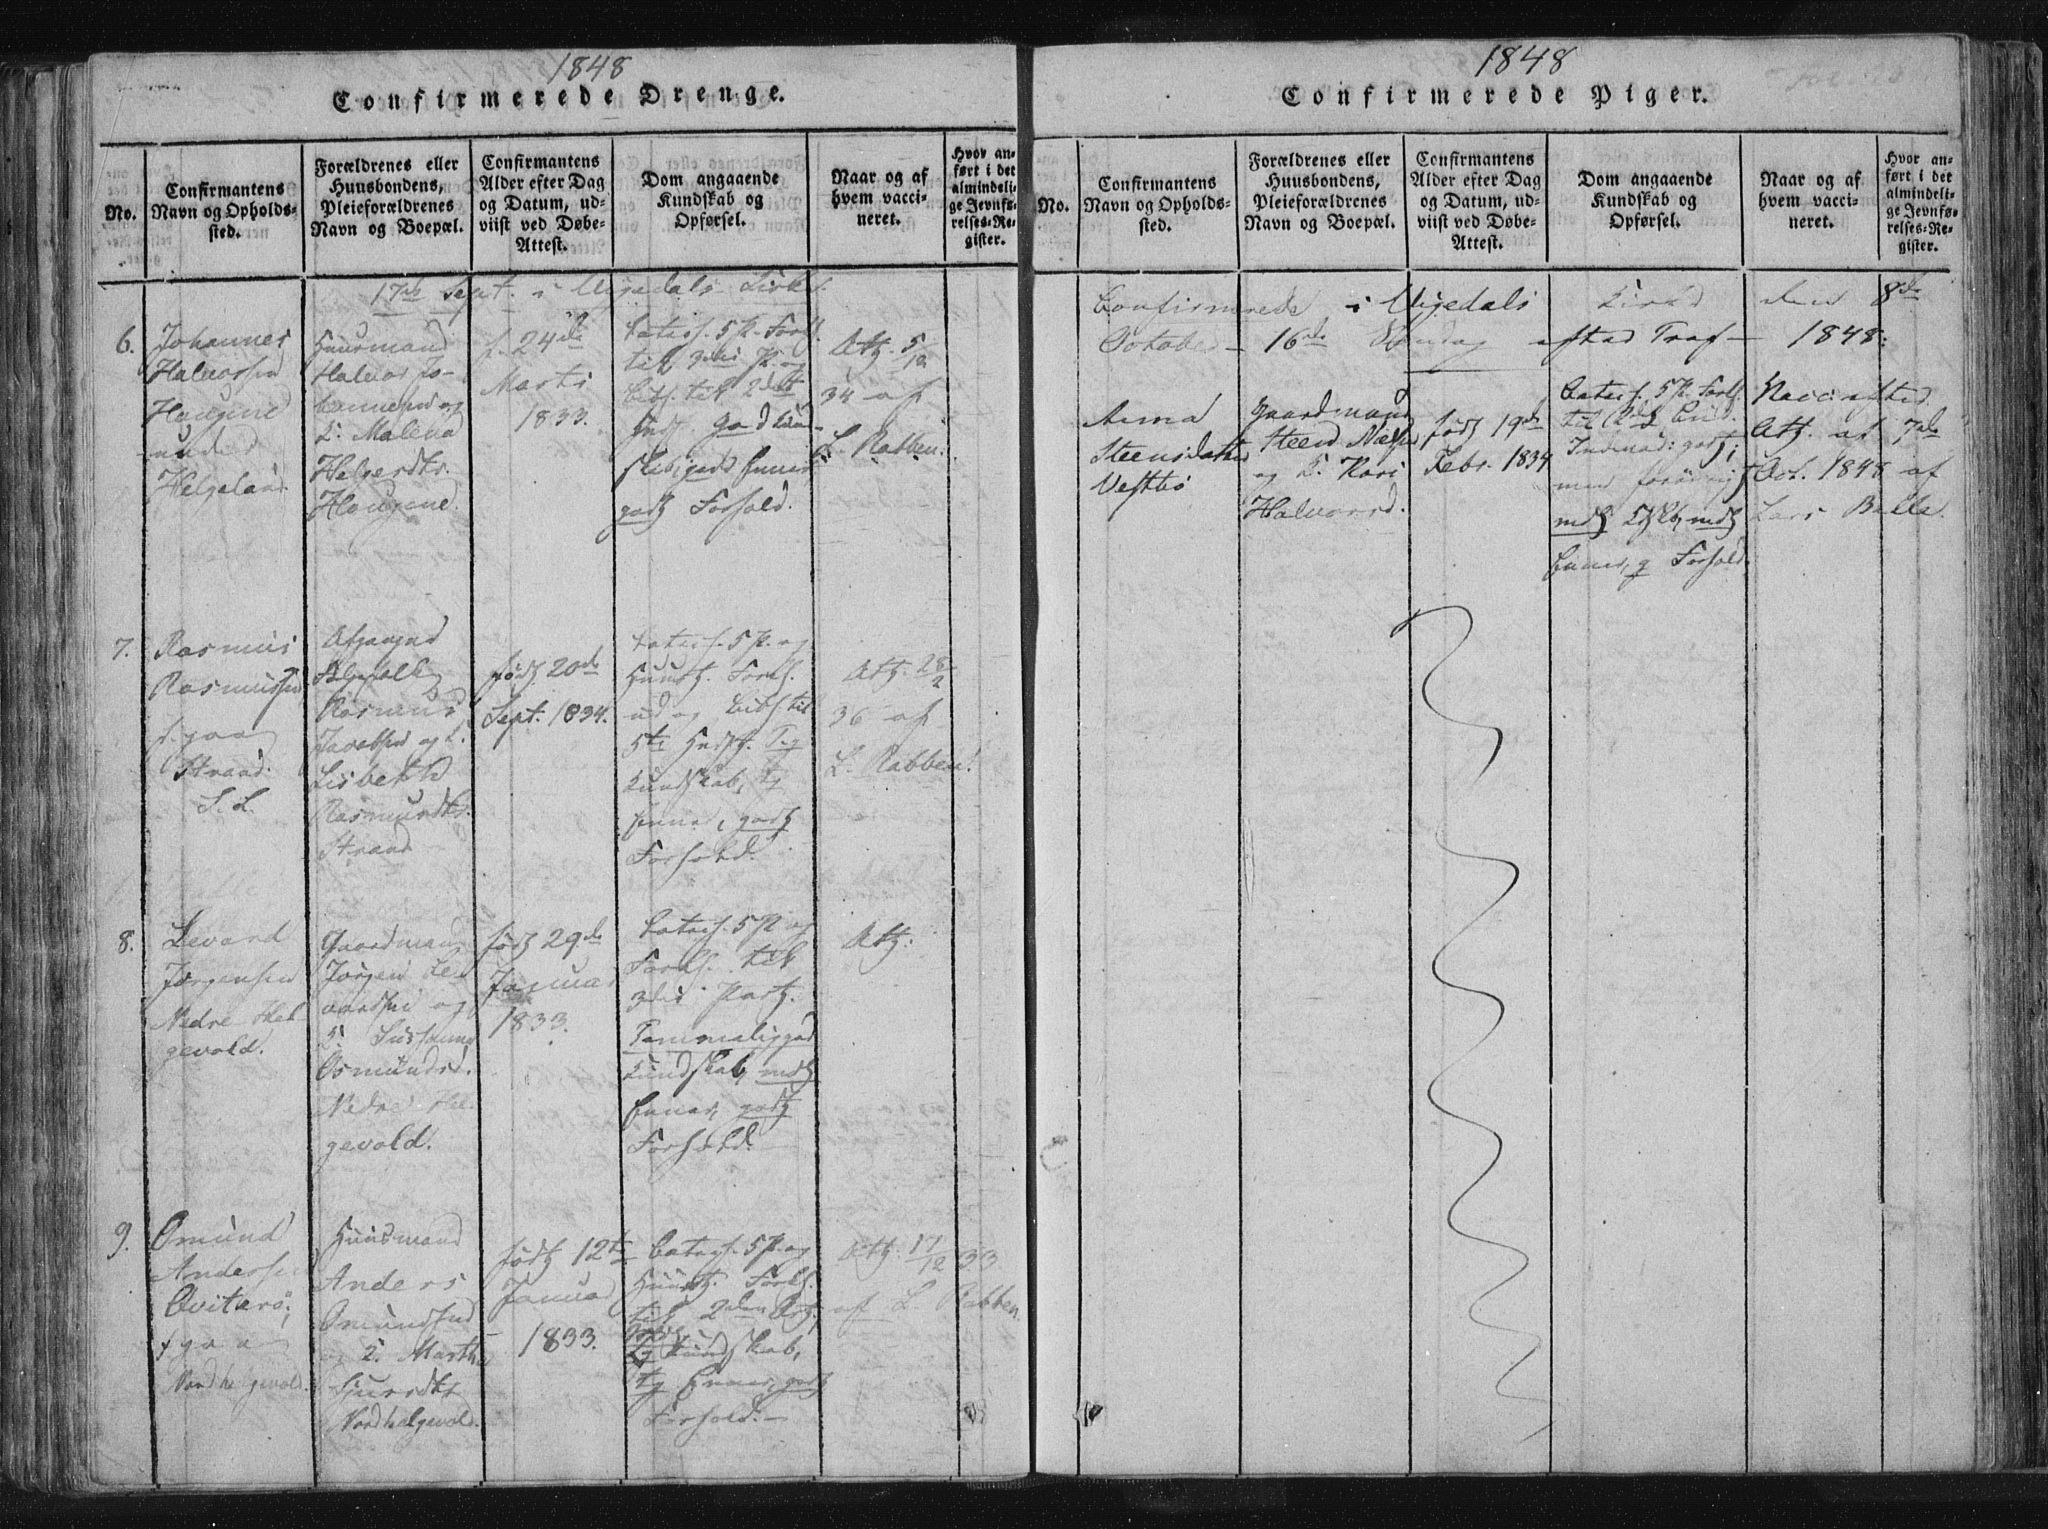 1848
Confirmerede Drenge.
No.
Confirmantens
Navn og Opholds-
sted.
Forældrenes eller
Huusbondens,
Pleieforældrenes
Navn og Boepæl.
Confirmantens
Alder efter Dag
og Datum, ud-
viist ved Døbe-
Attest.
Dom angaaende
Kundskab og
Opførsel.
Naar og af
hvem vacci-
neret.
Hvor an-
ført i det
almindeli-
ge Jevnfø-
relses-Re-
gister.
17de Sept. i Kirke.
6.
Johannes
Halvorsen
Hougene
under
Helgeland.
Huusmand
Halvor Jo-
hannesen og
K. Malena
Helgesdtr.
Hougene.
f. 24de
Marts
1833.
Catech. 5 P. Forkl.
til 3die P. og
Bibh. til 2det
god Kund-
skab, gode Evner
godt Forhold.
Att. 5/12
34 af
L. Rabben.
7.
Rasmus
Rasmussen
f. paa
Strand.
S. L.
Afgangne
Rasmus
Jacobsen og K.
Lisbeth
Rasmusdtr.
Strand
født 20de
Sept. 1834.
Catech. 5 P. og
Forkl.
ud og Bibh. til
5te
Kundskab, Tg
Evner, godt
Forhold.
Att. 28/2
36 af
L. Rabben.
8.
Sevard
Jørgensen
Nedre Hel
gevold.
Gaardmand
Jørgen Se-
vardsen og
K.
Osmundsd.
Nedre Hel
gevold.
født 29de
Januar
1833.
Catech. 5 P. og
Forkl. til
3die Part.
Temmelig god
Kundskab, mdt
Evner, godt
Forhold.
Att:
9.
Omund
Andersen
Qvitarö,
f. paa
Nordhelgevold.
Huusmand
Anders
Omundsen
og K. Martha
Sjursdtr
Nordhelgevold.
født 12te
Januar
1833.
Catech. 5 P. og
Forkl.
til 2den Art.
Tg Kundskab,
Tg Evner, godt
Forhold. —
Att. 17/12 33
af L Rabben
1848
Confirmerede Piger.
No.
Confirmantens
Navn og Opholds-
sted.
Forældrenes eller
Huusbondens,
Pleieforældrenes
Navn og Boepæl.
Confirmantens
Alder efter Dag
og Datum, ud-
viist ved Døbe-
Attest.
Dom angaaende
Kundskab og
Opførsel.
Naar og af
hvem vacci-
neret.
Hvor an-
ført i det
almindeli-
ge Jevnfø-
relses-Re-
gister.
Confirmerede i Kirke den 8de
October — 16de Søndag efter Tref — 1848:
Anna
Steensdatter
Vestbø
Gaardmand
Steen Nielsen
og K. Kari
Halvorsd.
født 19de
Febr. 1834
Catech. 5 P. Forkl.
til
godt,
med
mdt Kdskb, mdt
Evner, g Forhold.
Vacc. efter
Att. af 7de
Oct. 1848 af
Lars Balle.